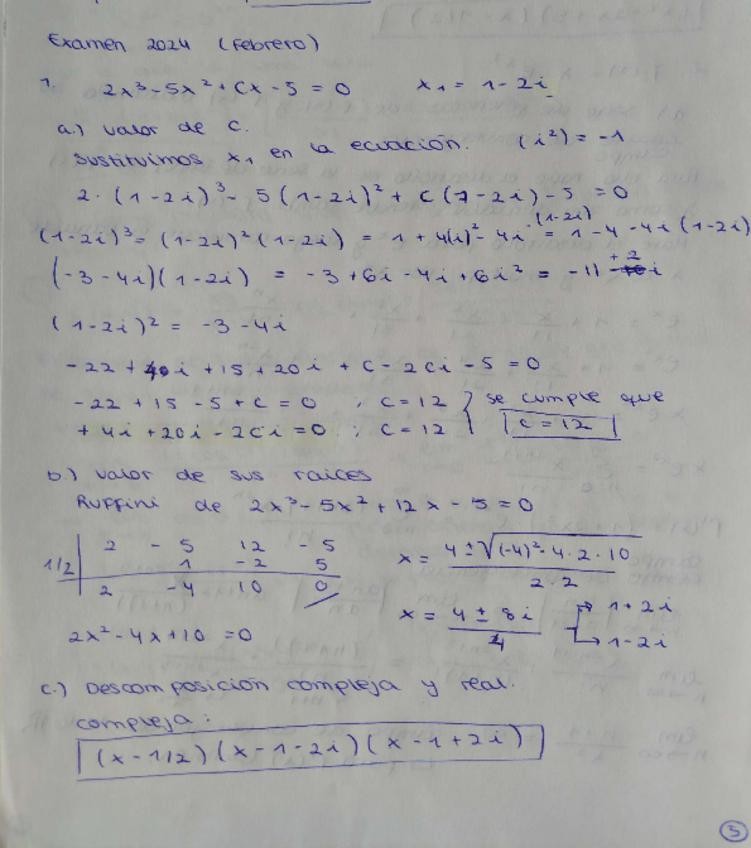 Examen 2024 (Febrero)
1. 2x³-5x²+cx-5=0 x₁=1-2i
a.) valor de c.
Sustituimos x₁ en la ecuación. (i²)=-1
2·(1-2i)³-5(1-2i)²+c(1-2i)-5=0
(1-2i)³=(1-2i)²(1-2i)=1+4(i)²-4i·(1-2i)=1-4-4i(1-2i)
(-3-4i)(1-2i)=-3+6i-4i+6i²=-11+2i
(1-2i)²=-3-4i
-22+4i+15+20i+c-2ci-5=0
-22+15-5+c=0; c=12 } se cumple que
+4i+20i-2ci=0; c=12 c=12
b.) valor de sus raices
Ruffini de 2x³-5x²+12x-5=0
2 -5 12 -5
1/2 1 -2 5
2 -4 10 0
2x²-4x+10=0
x=4±√(-4)²-4·2·10
2·2
x=4±8i → 1+2i
4 → 1-2i
c.) Descomposición compleja y real.
compleja:
(x-1/2)(x-1-2i)(x-1+2i)
3